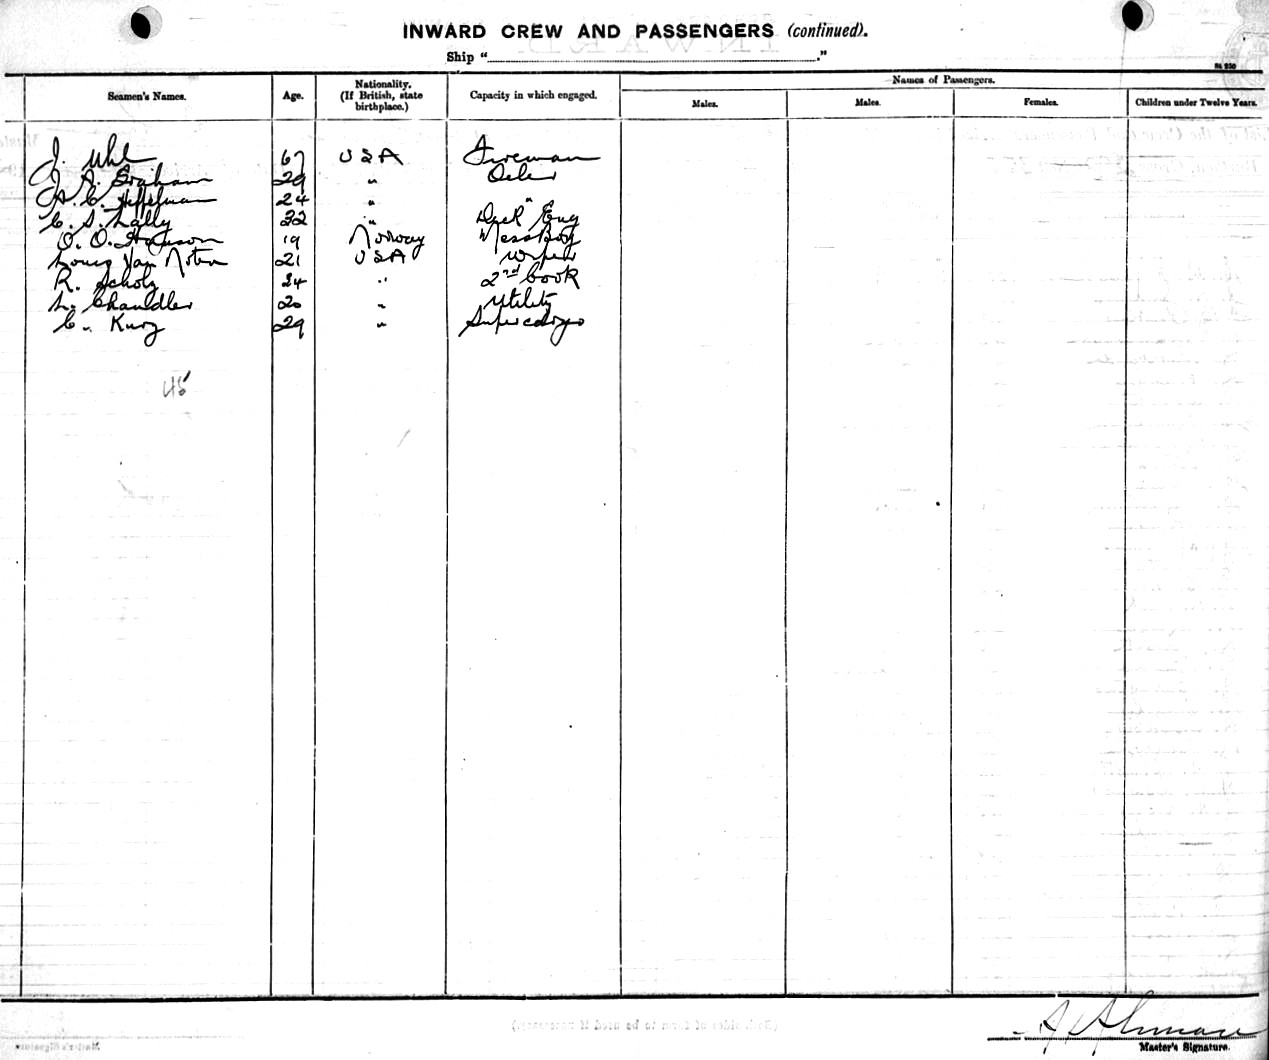 INWARD CREW AND PASSENGERS (continued).
Ship " ."
Seamen's Names. Age. Nationality. (If British, state birthplace.) Capacity in which engaged. Names of Passengers.
Males. Males. Females. Children under Twelve Years.
J. Uhl 67 USA Fireman
J. A. Graham 29 " Oiler
H. C. Heffelman 24 " "
C. S. Lally 32 " Deck Eng
O. O. 19 Norway Messboy
Louis Van Noten 21 USA Wiper
R. Scholz 24 " 2nd Cook
L. Chandler 20 " Utility
C. Kurz 29 " Supercargo
45
Master's Signature.